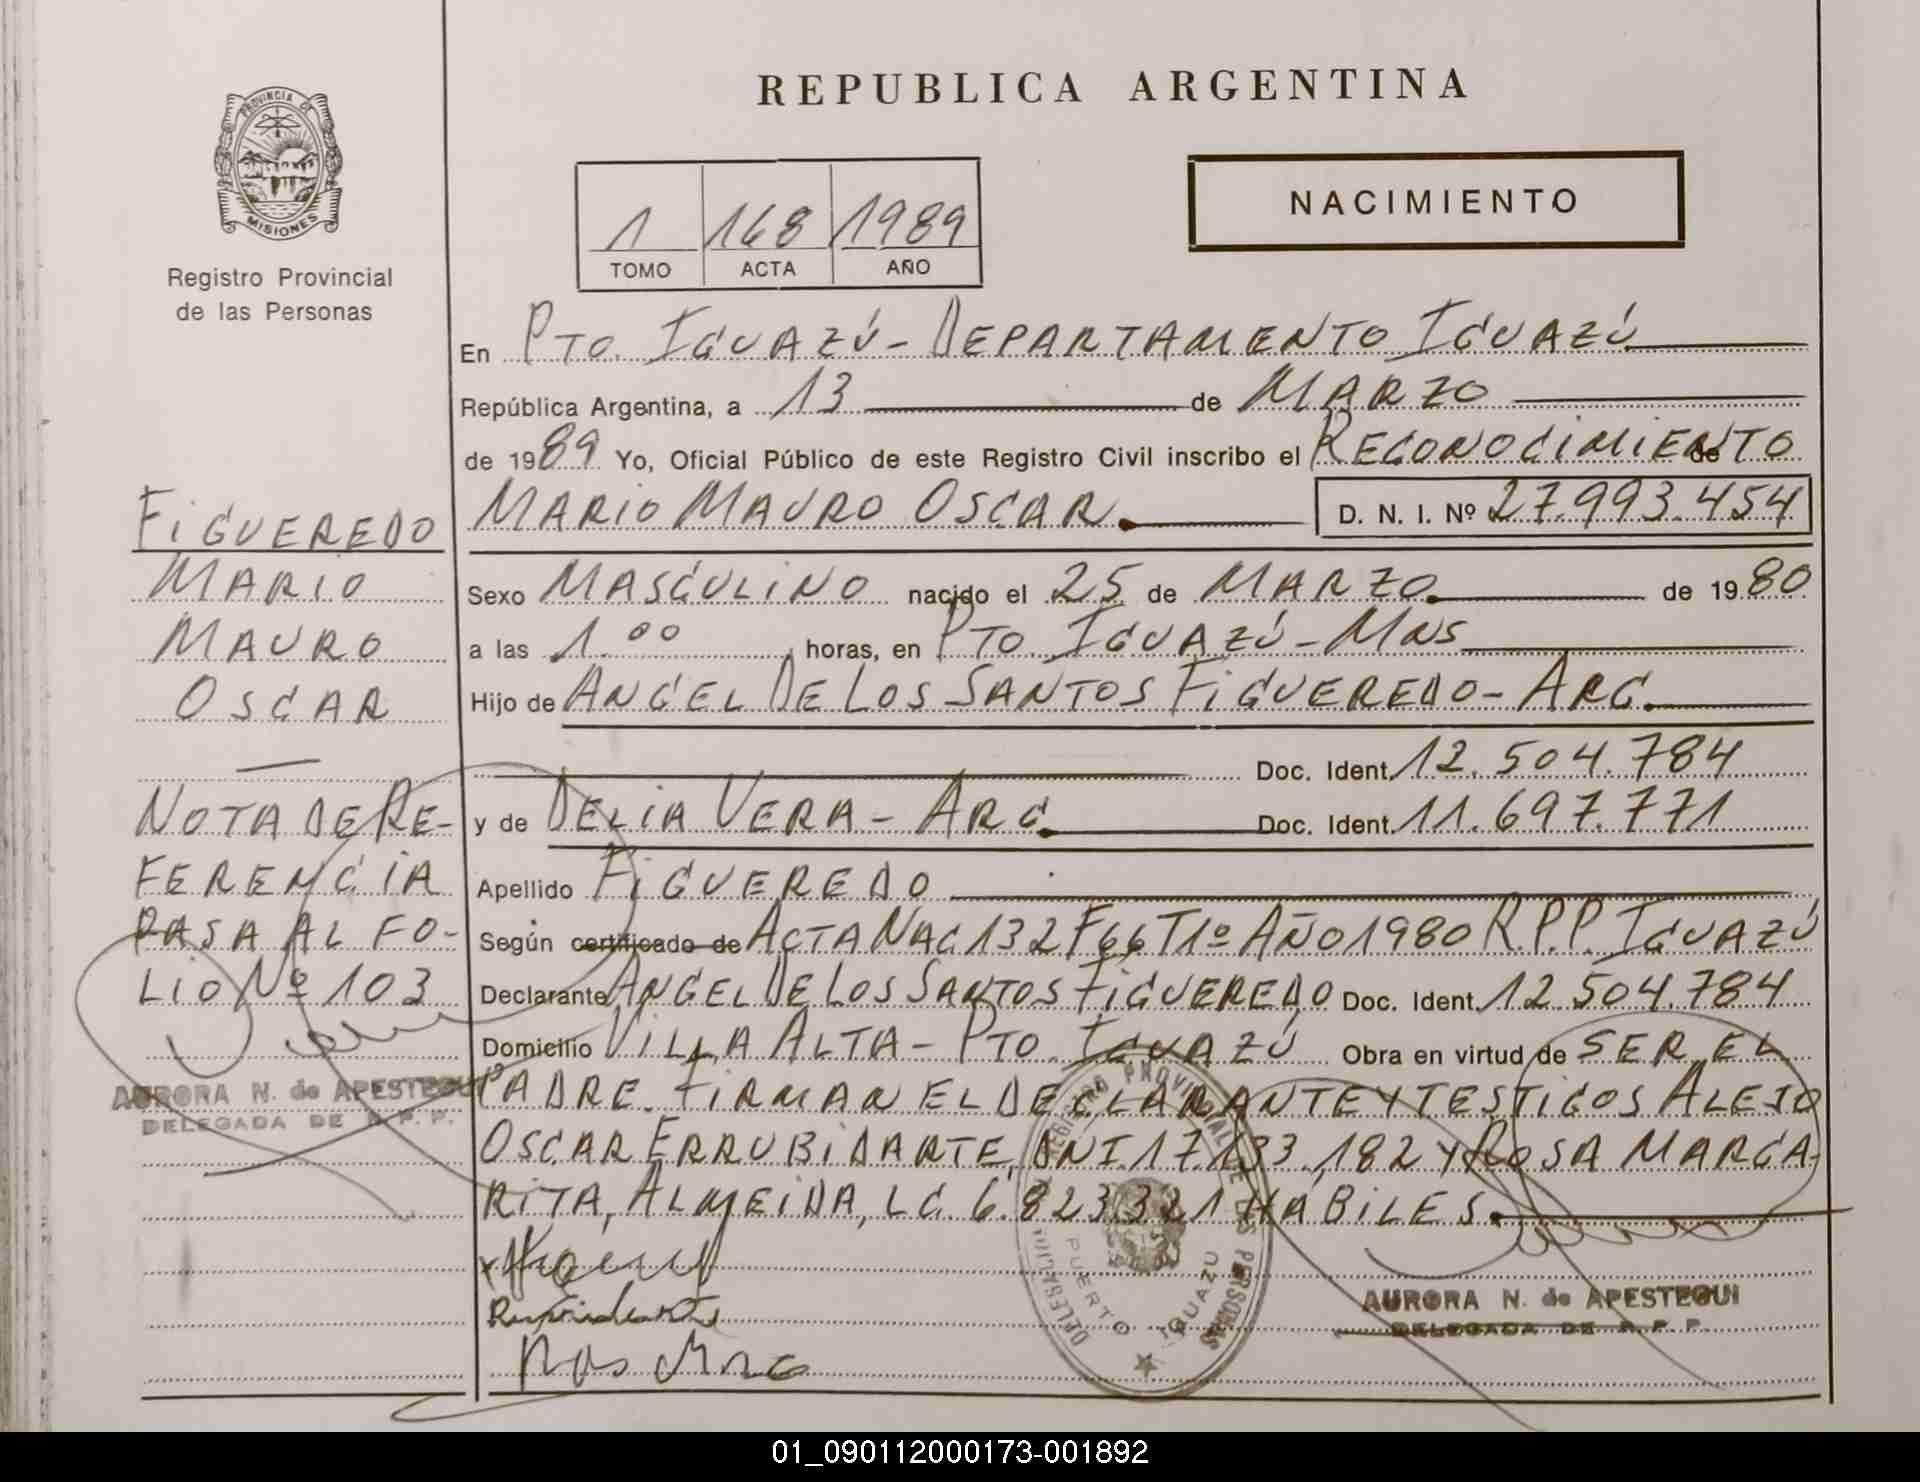 PROVINCIA DE
MISIONES
Registro Provincial
de las Personas
REPUBLICA ARGENTINA
NACIMIENTO
1 168 1989
TOMO ACTA AÑO
En PTO. IGUAZÚ - DEPARTAMENTO IGUAZÚ
República Argentina, a 13 de MARZO
de 1989 Yo, Oficial Público de este Registro Civil inscribo el RECONOCIMIENTO de
MARIO MAURO OSCAR. D. N. I. Nº 27.993.454
Sexo MASCULINO nacido el 25 de MARZO de 1980
a las 1.00 horas, en PTO. IGUAZÚ - MNS
Hijo de ANGEL DE LOS SANTOS FIGUEREDO - ARG.
Doc. Ident. 12.504.784
y de DELIA VERA - ARG. Doc. Ident. 11.697.771
Apellido FIGUEREDO
Según certificado de ACTA NAC 132 F 66 T1º AÑO 1980 R.P.P. IGUAZÚ
Declarante ANGEL DE LOS SANTOS FIGUEREDO Doc. Ident. 12.504.784
Domicilio VILLA ALTA - PTO. IGUAZÚ Obra en virtud de SER EL
PADRE. FIRMAN EL DECLARANTE Y TESTIGOS ALEJO
OSCAR ERRUBIDARTE, DNI 17.133.182 Y ROSA MARGA-
RITA, ALMEIDA, LC. 6.823.321 HABILES.
FIGUEREDO
MARIO
MAURO
OSCAR
NOTA DE RE-
FERENCIA
PASA AL FO-
LIO Nº 103
AURORA N. de APESTEGUI
DELEGADA DE R. P. P.
REGISTRO PROVINCIAL DE LAS PERSONAS
DELEGACION
PUERTO IGUAZU
AURORA N. de APESTEGUI
DELEGADA DE R. P. P.
01_090112000173-001892